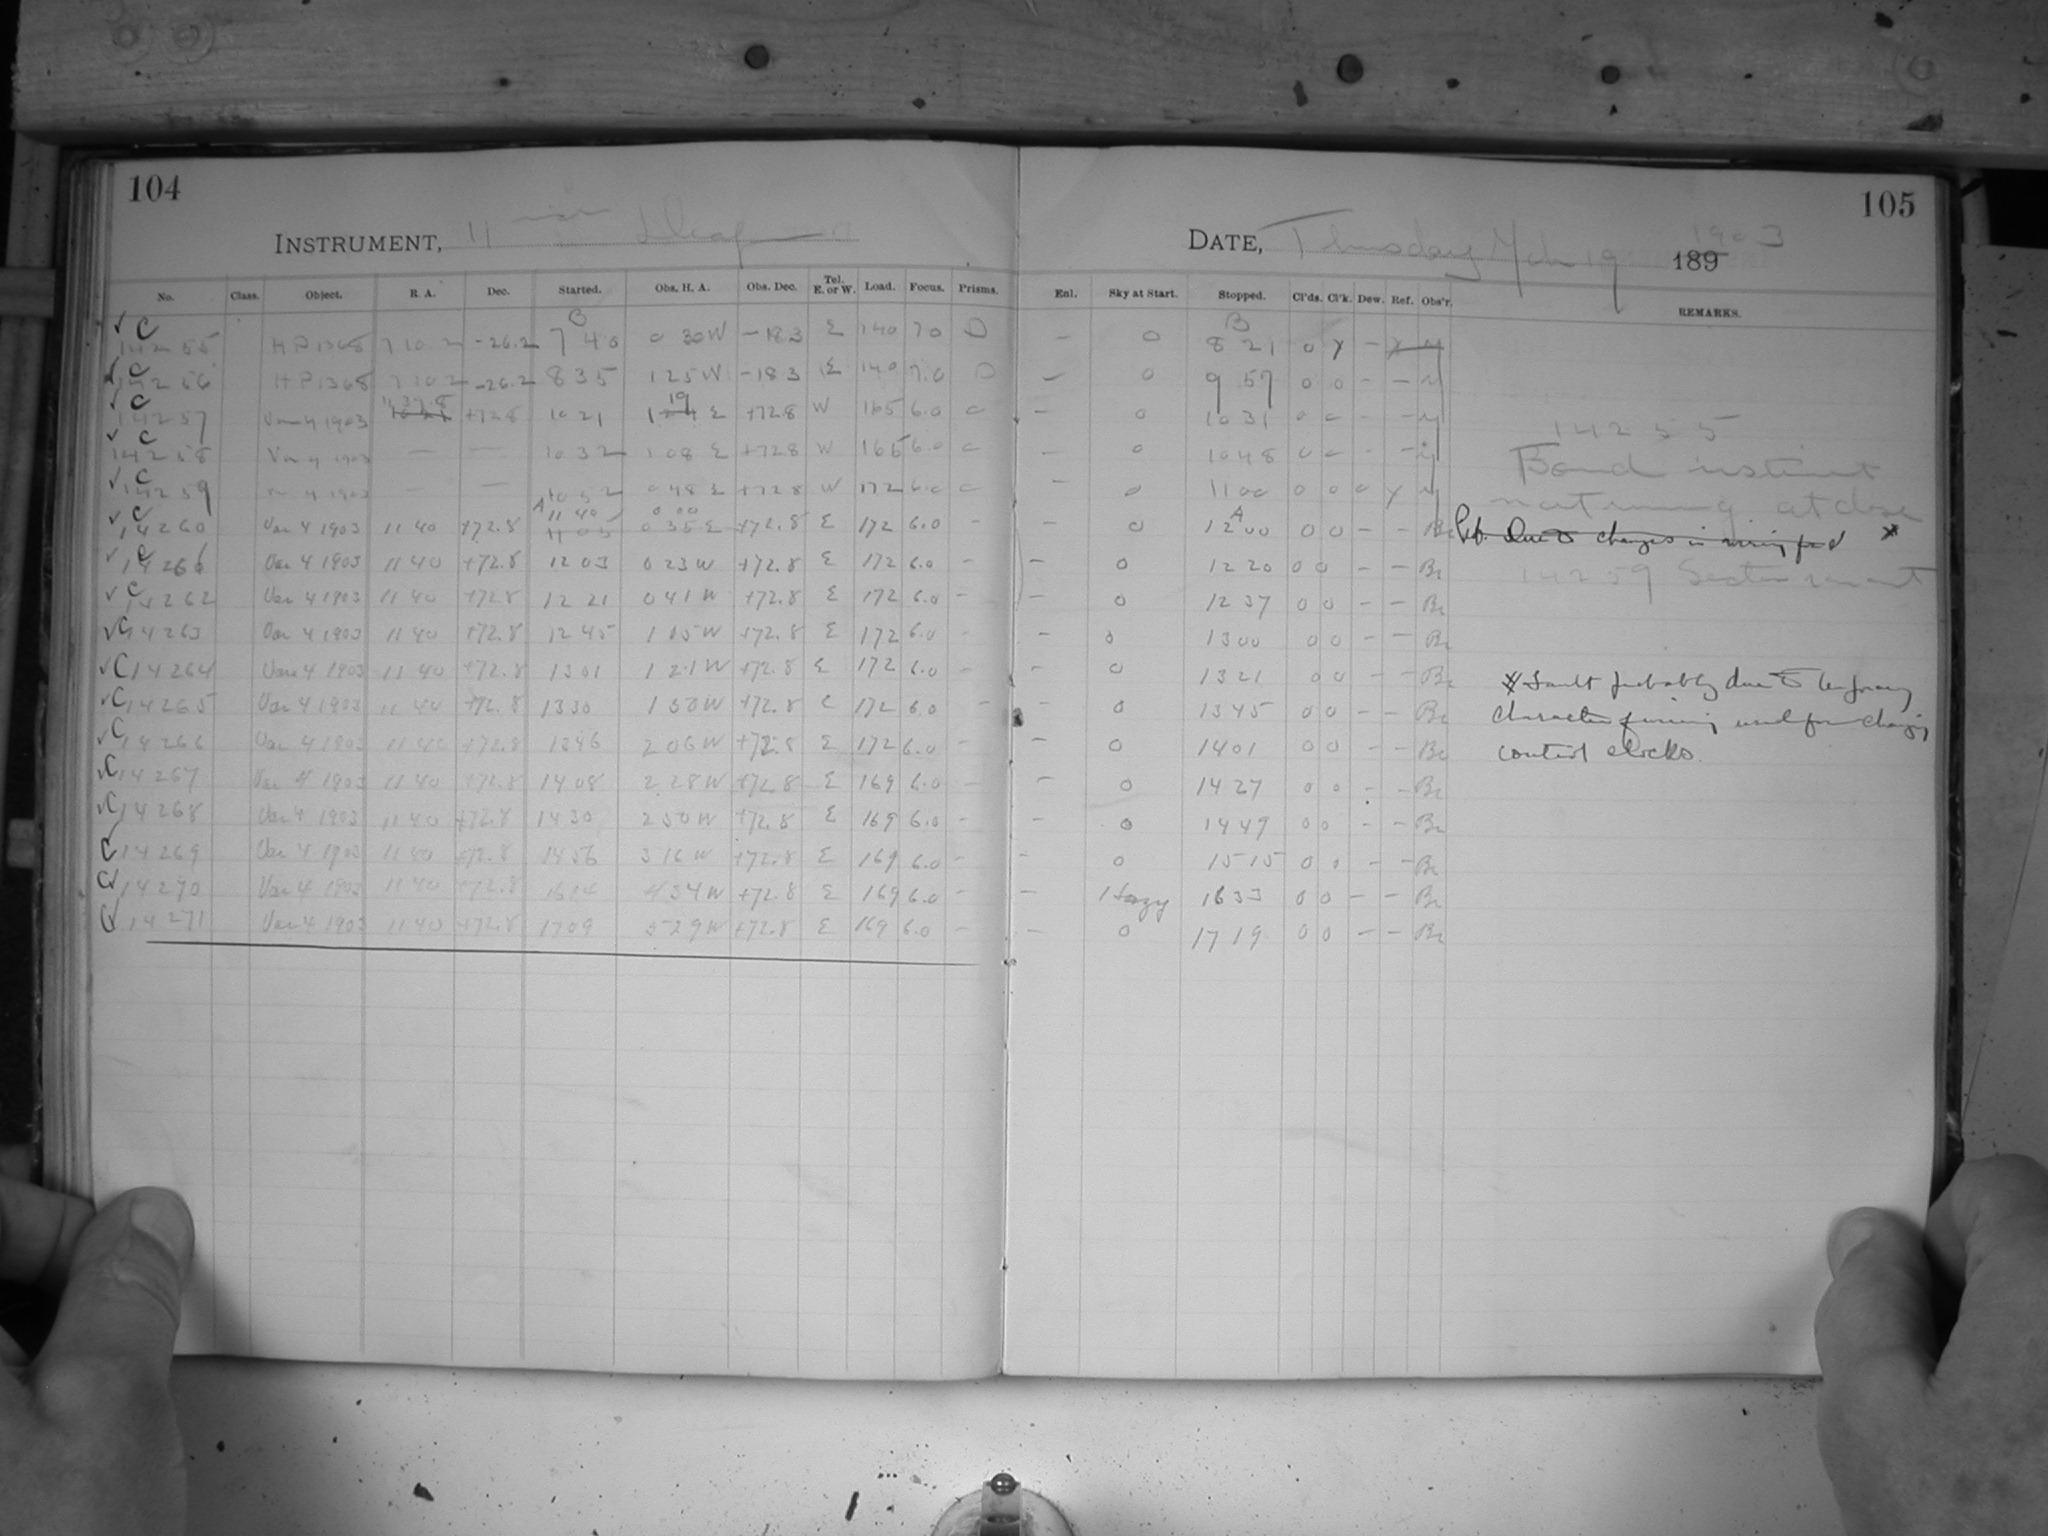 104
105
INSTRUMENT, 11 inch Draper
DATE, Thursday Mch 19 1903 189
No. Class. Object. R. A. Dec. Started. Obs. H. A. Obs. Dec. Tel. E. or W. Load. Focus. Prisms. Enl. Sky at Start. Stopped. Cl'ds. Cl'k. Dew. Ref. Obs'r. REMARKS.
✓ C 14255 HP1368 7 10.2 -26.2 B 7 40 0 30W -18.3 E 140 7.0 D – 0 B 8 21 0 Y –
✓ C 14256 HP1368 7 10.2 -26.2 8 35 1 25W -18.3 E 140 7.0 D – 0 9 57 0 0 – –
✓ C 14257 Var 4 1903 11 37.8 +72.8 10 21 1 19 E +72.8 W 165 6.0 0 – 0 10 31 0 0 – –
✓ C 14258 Var 4 1903 — — 10 32 1 08 E +72.8 W 165 6.0 0 – 0 10 48 0 0 – –
✓ C 14259 Var 4 1903 — — 10 52 0 48 E +72.8 W 172 6.0 0 – 0 11 00 0 0 0 Y
14255
Bond
not running at close
✓ C 14260 Var 4 1903 11 40 +72.8 A 11 40 11 05 0 00 0 35 E +72.8 E 172 6.0 – – 0 A 12 00 0 0 – – Bc
Due to changes in wiring
✓ C 14261 Var 4 1903 11 40 +72.8 12 03 0 23 W +72.8 E 172 6.0 – – 0 12 20 0 0 – – Bc
14259 Sector ran out
✓ C 14262 Var 4 1903 11 40 +72.8 12 21 0 41 W +72.8 E 172 6.0 – – 0 12 37 0 0 – – Bc
✓ C 14263 Var 4 1903 11 40 +72.8 12 45 1 05 W +72.8 E 172 6.0 – – 0 13 00 0 0 – – Bc
✓ C 14264 Var 4 1903 11 40 +72.8 13 01 1 21 W +72.8 E 172 6.0 – – 0 13 21 0 0 – – Bc
* Fault probably due to temporary
✓ C 14265 Var 4 1903 11 40 +72.8 13 30 1 50 W +72.8 E 172 6.0 – – 0 13 45 0 0 – – Bc
character of wiring used for changing
✓ C 14266 Var 4 1903 11 40 +72.8 13 46 2 06 W +72.8 E 172 6.0 – – 0 14 01 0 0 – – Bc
control clocks.
✓ C 14267 Var 4 1903 11 40 +72.8 14 08 2 28 W +72.8 E 169 6.0 – – 0 14 27 0 0 – – Bc
✓ C 14268 Var 4 1903 11 40 +72.8 14 30 2 50 W +72.8 E 169 6.0 – – 0 14 49 0 0 – – Bc
✓ C 14269 Var 4 1903 11 40 +72.8 14 56 3 16 W +72.8 E 169 6.0 – – 0 15 15 0 0 – – Bc
C ✓ 14270 Var 4 1903 11 40 +72.8 16 14 4 34 W +72.8 E 169 6.0 – – Hazy 16 33 0 0 – – Bc
C ✓ 14271 Var 4 1903 11 40 +72.8 17 09 5 29 W +72.8 E 169 6.0 – – 0 17 19 0 0 – – Bc